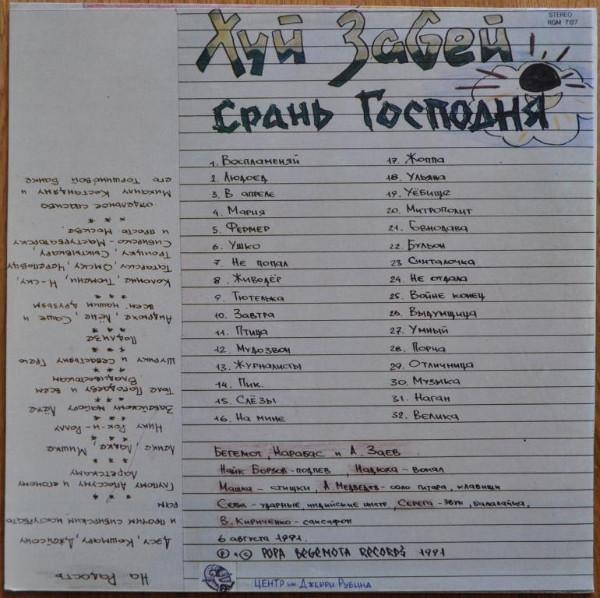 STEREO
RGM 707
Хуй Забей
Срань Господня
1. Воспламеняй
2. Людоед
3. В апреле
4. Мария
5. Фермер
6. Ушко
7. Не попал
8. Живодёр
9. Тютелька
10. Завтра
11. Птица
12. Мудозвон
13. Журналисты
14. Пик.
15. Слёзы
16. На мине
17. Жоппа
18. Ульяна
19. Уёбище
20. Митрополит
21. Говнодава
22. Бульон
23. Синталочка
24. Не отдала
25. Войне конец
26. Выдумщица
27. Умный
28. Порча
29. Отличница
30. Музыка
31. Наган
32. Велика
Бегемот, Карабас и А. Заев
Найк Борзов - подпев, Надюха - вокал
Машка - стишки, А. Медведев - соло гитара, клавиши
Сева - ударные индийские инстр, Серёга - звук, балалайка,
В. Кириченко - саксафон
6 августа 1991.
℗ + © POPA BEGEMOTA RECORDS 1991
ЦЕНТР им Джерри Рубина
На Радость
Дэсу, Кошмару, Джойсону
и прочим сибирским
рам
* * *
Глупому и егоному
Ларетскому
* * *
Лёшке, Ладке, Мишке
* * *
Нику Рок-н-Роллу
* * *
майору Лёхе
* * *
Толе Погодаеву и всем
Владивостокам
* * *
Шурику и Севастьяну Гречу
* * *
Подлизе
* * *
Андрюхе, Лёне, Саше и
всем нашим друзьям
* * *
Коломне, Тюмени, Н-ску,
Татарску, Омску, Череповцу
Троицку, Сыктывкару
Сибирско-Мастурбаторску
и просто Москве.
* * *
отдельное спасибо
Михаилу Костандяну и
его Банке